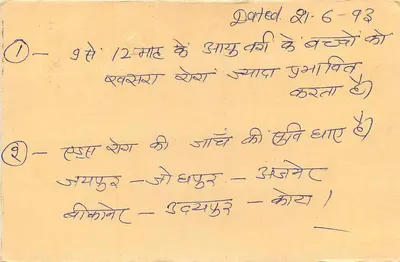 Dated 21-6-93
① - 9 से 12 माह के आयु वर्ग के बच्चों को
खसरा रोग ज्यादा प्रभावित
करता है।
② - एड्स रोग की जाँच की सुविधाए है।
जयपुर - जोधपुर - अजमेर
बीकानेर - उदयपुर - कोटा।